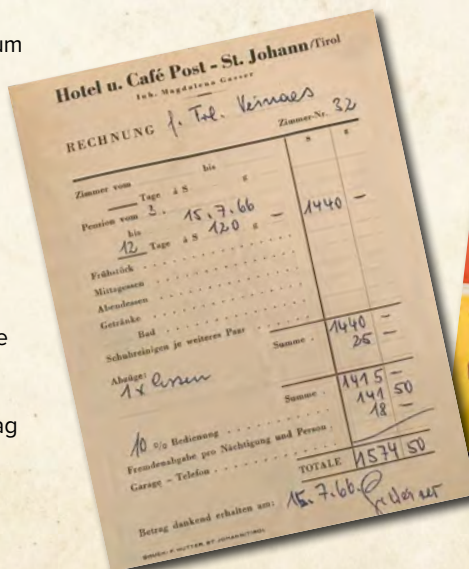 um
Hotel u. Café Post - St. Johann/Tirol
Inh. Magdalena Gasser
RECHNUNG f. Frl.
Zimmer-Nr. 32
S g
Zimmer vom bis
Tage à S g
Pension vom 3. bis 15.7.66
12 Tage à S 120 g — 1440 —
Frühstück
Mittagessen
Abendessen
Getränke
Bad
Schuhreinigen je weiteres Paar
Summe 1440 —
Abzüge: 25 —
1 x Essen
Summe 1415 —
10 % Bedienung 141 50
Fremdenabgabe pro Nächtigung und Person 18 —
Garage - Telefon
TOTALE 1574 50
Betrag dankend erhalten am: 15.7.66.
DRUCK: F. HUTTER, ST. JOHANN/TIROL
e
ag